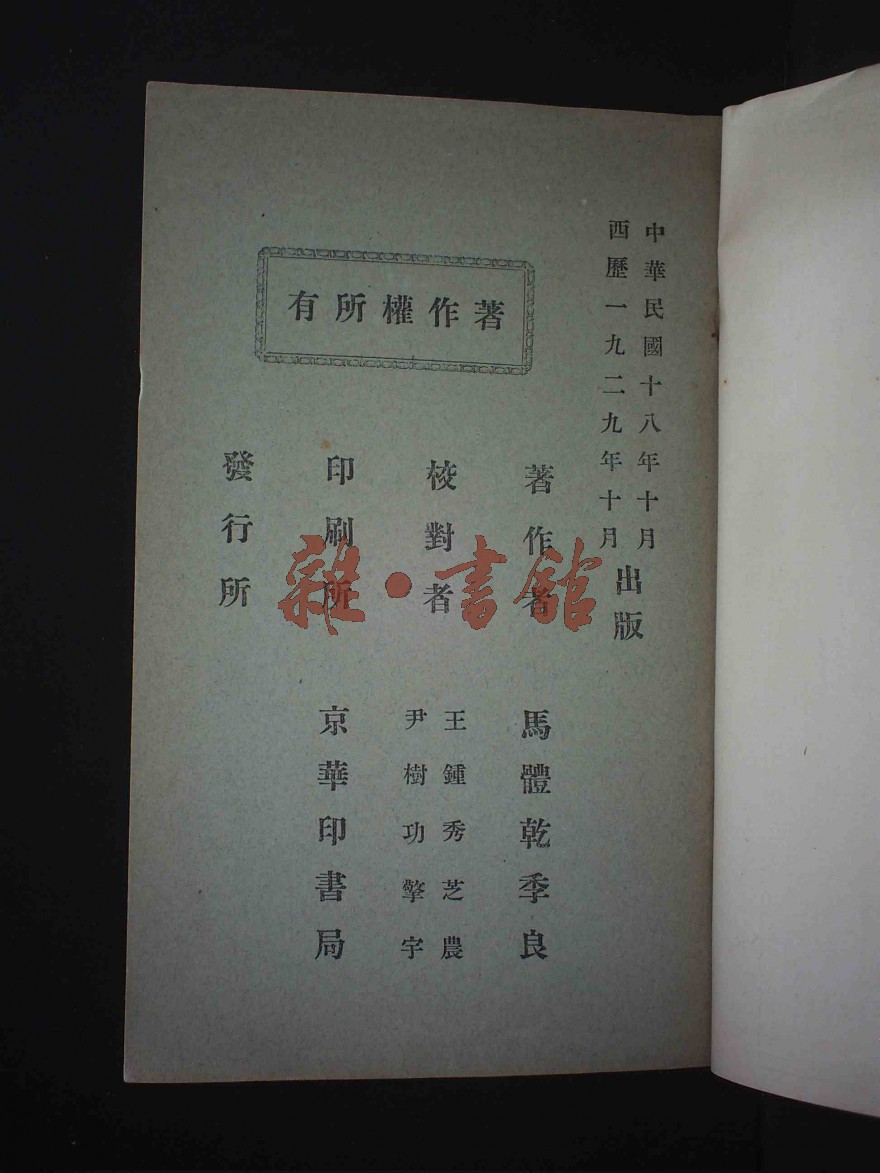 中華民國十八年十月
西歷一九二九年十月
出版
著作權所有
著作者
馬體乾季良
校對者
王鍾秀芝農
尹樹功擎宇
印刷所
京華印書局
發行所
雜·書館